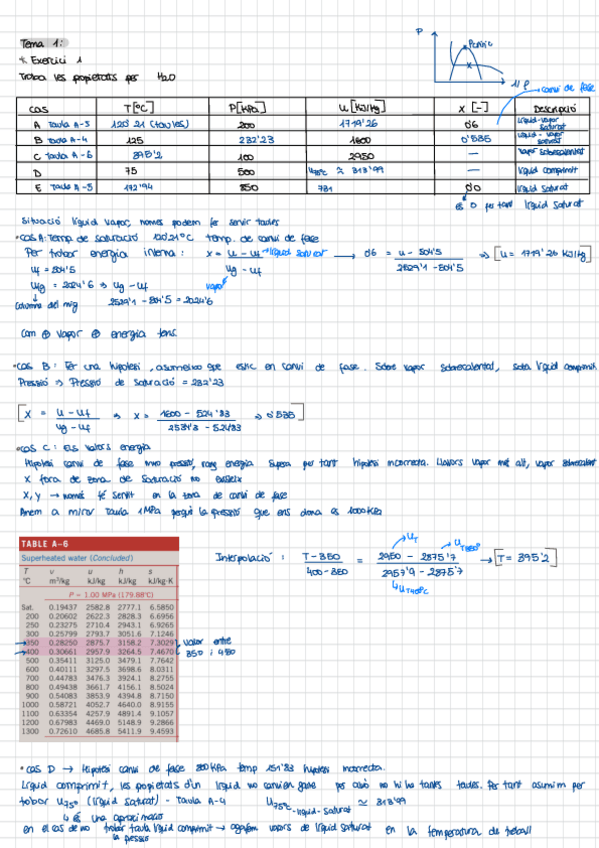 Tema 1:
* Exercici 1
Troba les propietats per H2O
P
Punt crític
canvi de fase
cas T[°C] P[kPa] u[kJ/kg] x [-] Descripció
A Taula A-5 120'21 (taules) 200 1719'26 0'6 líquid-vapor saturat
B Taula A-4 125 232'23 1600 0'535 líquid-vapor saturat
C Taula A-6 395'2 100 2950 — vapor sobreescalentat
D 75 500 u75°C ≃ 313'99 — líquid comprimit
E Taula A-5 172'94 850 731 0'0 líquid saturat
és 0 per tant líquid saturat
Situació líquid vapor, només podem fer servir taules
• cas A: Temp de saturació 120'21°C temp. de canvi de fase
Per trobar energia interna: x = u - uf / ug - uf → 0'6 = u - 504'5 / 2529'1 - 504'5 ⇒ [u = 1719'26 kJ/kg]
líquid saturat
vapor
uf = 504'5
ufg = 2024'6 ⇒ ug - uf
Columna del mig 2529'1 - 504'5 = 2024'6
Com ⊕ vapor ⊕ energia tens.
• cas B: Fer una hipotesi, assumeixo que estic en canvi de fase. Sobre vapor sobreescalentat, sota líquid comprimit.
Pressió ⇒ Pressió de saturació = 232'23
[x = u - uf / ug - uf ⇒ x = 1600 - 524'83 / 2534'3 - 524'83 ⇒ 0'535]
• cas C: Els valors energia
Hipotesi canvi de fase miro pressió, rang energia supera per tant hipotesi incorrecta. Llavors vapor més alt, vapor sobreescalentat
x fora de zona de saturació no existeix
x, y → només fé servir en la zona de canvi de fase
Anem a mirar taula 1MPa perquè la pressió que ens dona és 1000kPa
TABLE A-6
Superheated water (Concluded)
T v u h s
°C m³/kg kJ/kg kJ/kg kJ/kg·K
P = 1.00 MPa (179.88°C)
Sat. 0.19437 2582.8 2777.1 6.5850
200 0.20602 2622.3 2828.3 6.6956
250 0.23275 2710.4 2943.1 6.9265
300 0.25799 2793.7 3051.6 7.1246
350 0.28250 2875.7 3158.2 7.3029
400 0.30661 2957.9 3264.5 7.4670
500 0.35411 3125.0 3479.1 7.7642
600 0.40111 3297.5 3698.6 8.0311
700 0.44783 3476.3 3924.1 8.2755
800 0.49438 3661.7 4156.1 8.5024
900 0.54083 3853.9 4394.8 8.7150
1000 0.58721 4052.7 4640.0 8.9155
1100 0.63354 4257.9 4891.4 9.1057
1200 0.67983 4469.0 5148.9 9.2866
1300 0.72610 4685.8 5411.9 9.4593
valor entre
350 i 400
Interpolació: T - 350 / 400 - 350 = 2950 - 2875'7 / 2957'9 - 2875'7 → [T = 395'2]
uT
uT350°
uT400°C
• cas D → Hipotesi canvi de fase 500kPa temp 151'83 hipotesi incorrecta.
Líquid comprimit, les propietats d'un líquid no canvien gaire per això no hi ha tantes taules. Per tant assumim per
trobar u75° (líquid saturat) - Taula A-4 u75°C-líquid-saturat ≃ 313'99
↳ és una aproximació
en el cas de no trobar taula líquid comprimit → agafem valors de líquid saturat en la temperatura de treball
la pressió